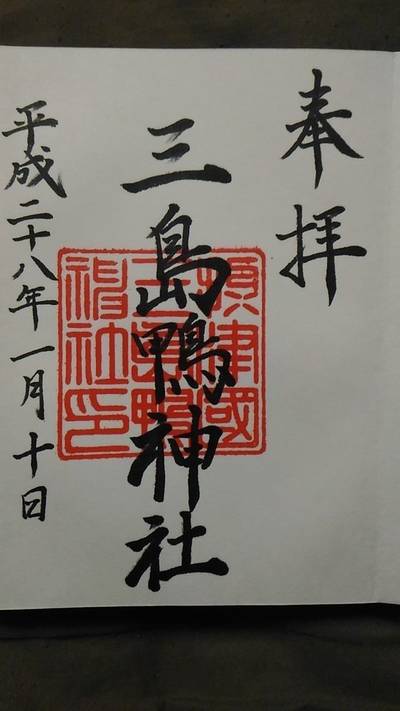 奉拝
三島鴨神社
摂津國
三島鴨
神社印
平成二十八年一月十日